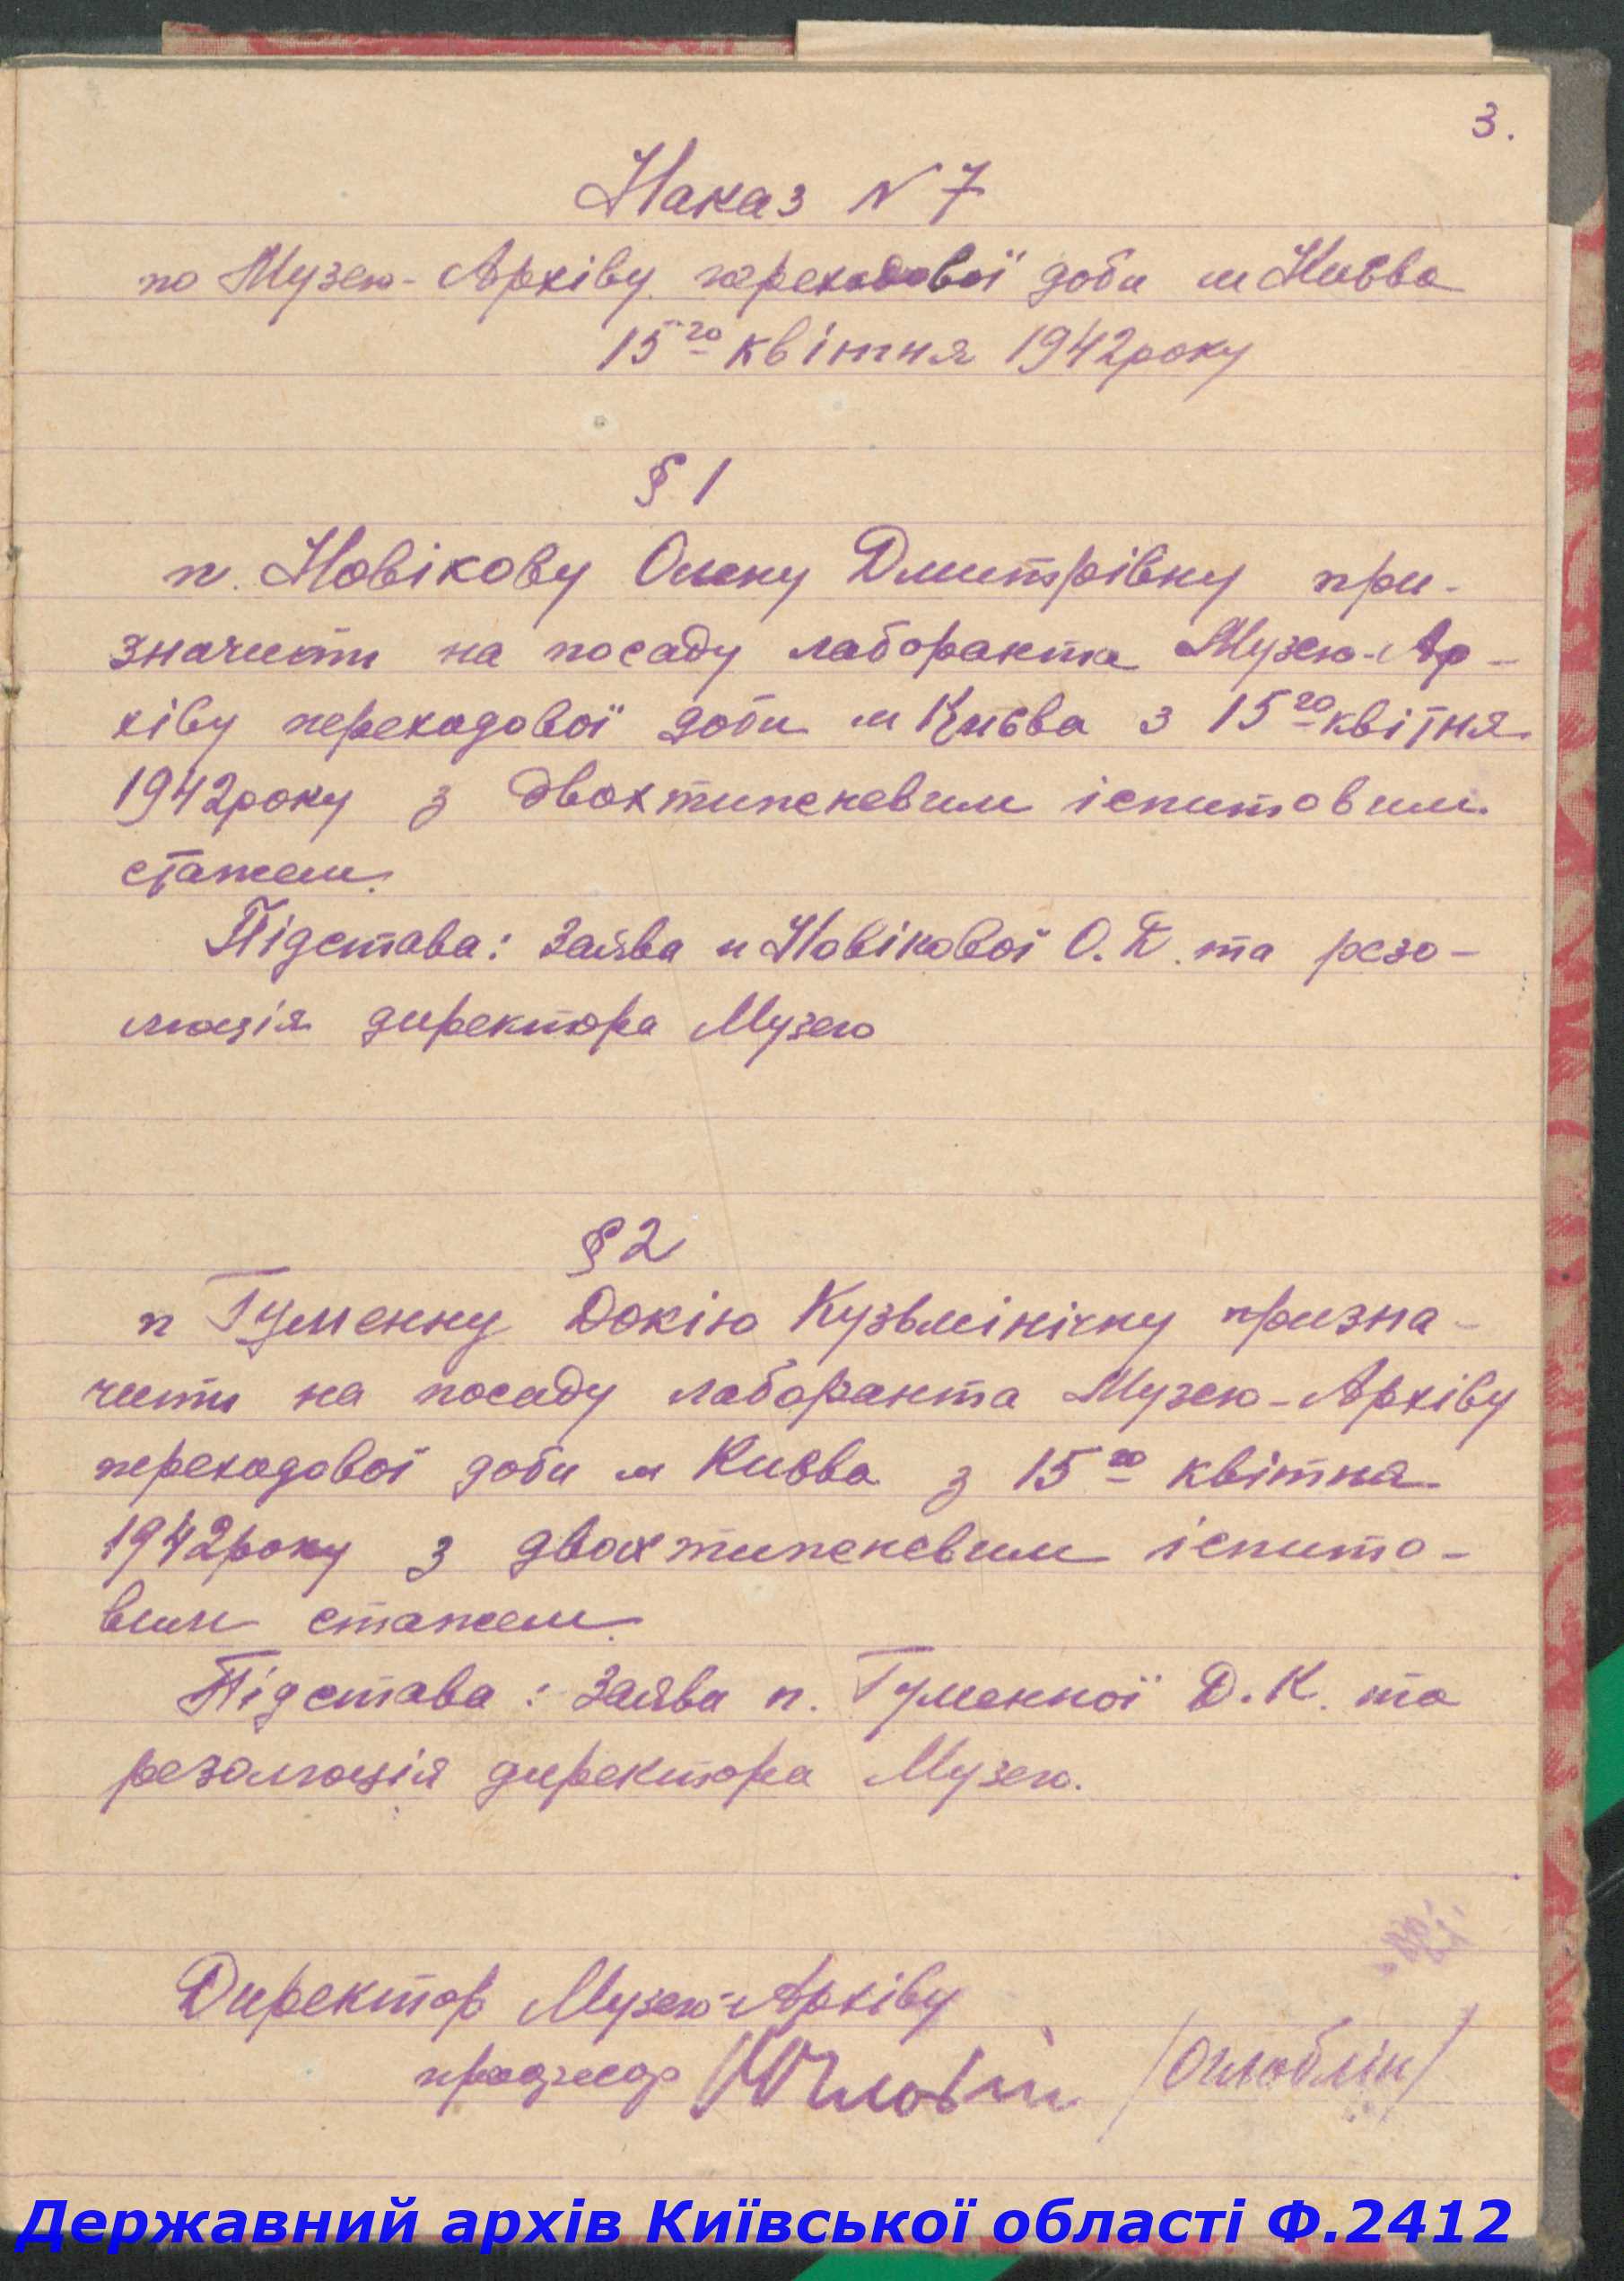 3.
Наказ N 7
по Музею-Архіву переходової доби м Києва
15го квітня 1942року
§ 1
п. Новікову Олену Дмитрівну при-
значити на посаду лаборанта Музею-Ар-
хіву переходової доби м Києва з 15го квітня
1942року з двохтижневим іспитовим
стажем.
Підстава: Заява п Новікової О.Д. та резо-
люція директора Музею
§ 2
п Гуменну Докію Кузьмінічну призна-
чити на посаду лаборанта Музею-Архіву
переходової доби м Києва з 15го квітня
1942року з двохтижневим іспито-
вим стажем.
Підстава: Заява п. Гуменної Д.К. та
резолюція директора Музею.
Директор Музею-Архіву
професор /Оглоблін/
Державний архів Київської області Ф.2412